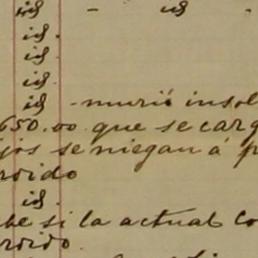 id - id
id.
id.
id
id - murió insol
650.00 que se carg
jos se niegan á p
rdido
id.
be si la actual Co
rdido